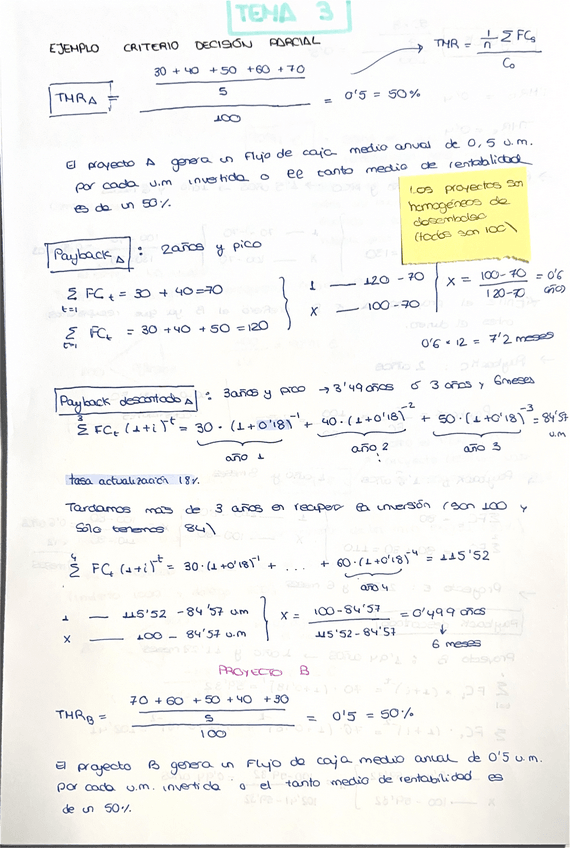 TEMA 3
EJEMPLO CRITERIO DECISIÓN PARCIAL
TMR = 1/n Σ FCs / C₀
TMR_A = (30 + 40 + 50 + 60 + 70 / 5) / 100 = 0'5 = 50%
El proyecto A genera un flujo de caja medio anual de 0,5 u.m.
por cada u.m invertida o el tanto medio de rentabilidad
es de un 50%.
Los proyectos son
homogéneos de
desembolso
(todos son 100)
Payback A : 2 años y pico
Σ t=1 FC t = 30 + 40 = 70
Σ t=1 FC t = 30 + 40 + 50 = 120
1 — 120 - 70
x — 100 - 70
x = 100-70 / 120-70 = 0'6 años
0'6 × 12 = 7'2 meses
Payback descontado A : 3 años y pico → 3'49 años ó 3 años y 6 meses
3 Σ FC t (1+i)^-t = 30 · (1+0'18)^-1 + 40 · (1+0'18)^-2 + 50 · (1+0'18)^-3 = 84'57 u.m
año 1 año 2 año 3
tasa actualización 18%
Tardamos mas de 3 años en recuper la inversión (son 100 y
sólo tenemos 84)
4 Σ FC t (1+i)^-t = 30 · (1+0'18)^-1 + ... + 60 · (1+0'18)^-4 = 115'52
año 4
1 — 115'52 - 84'57 um
x — 100 - 84'57 u.m
x = 100-84'57 / 115'52-84'57 = 0'499 años
↓
6 meses
PROYECTO B
TMR_B = (70 + 60 + 50 + 40 + 30 / 5) / 100 = 0'5 = 50%
El proyecto B genera un flujo de caja medio anual de 0'5 u.m.
por cada u.m. invertida o el tanto medio de rentabilidad es
de un 50%.